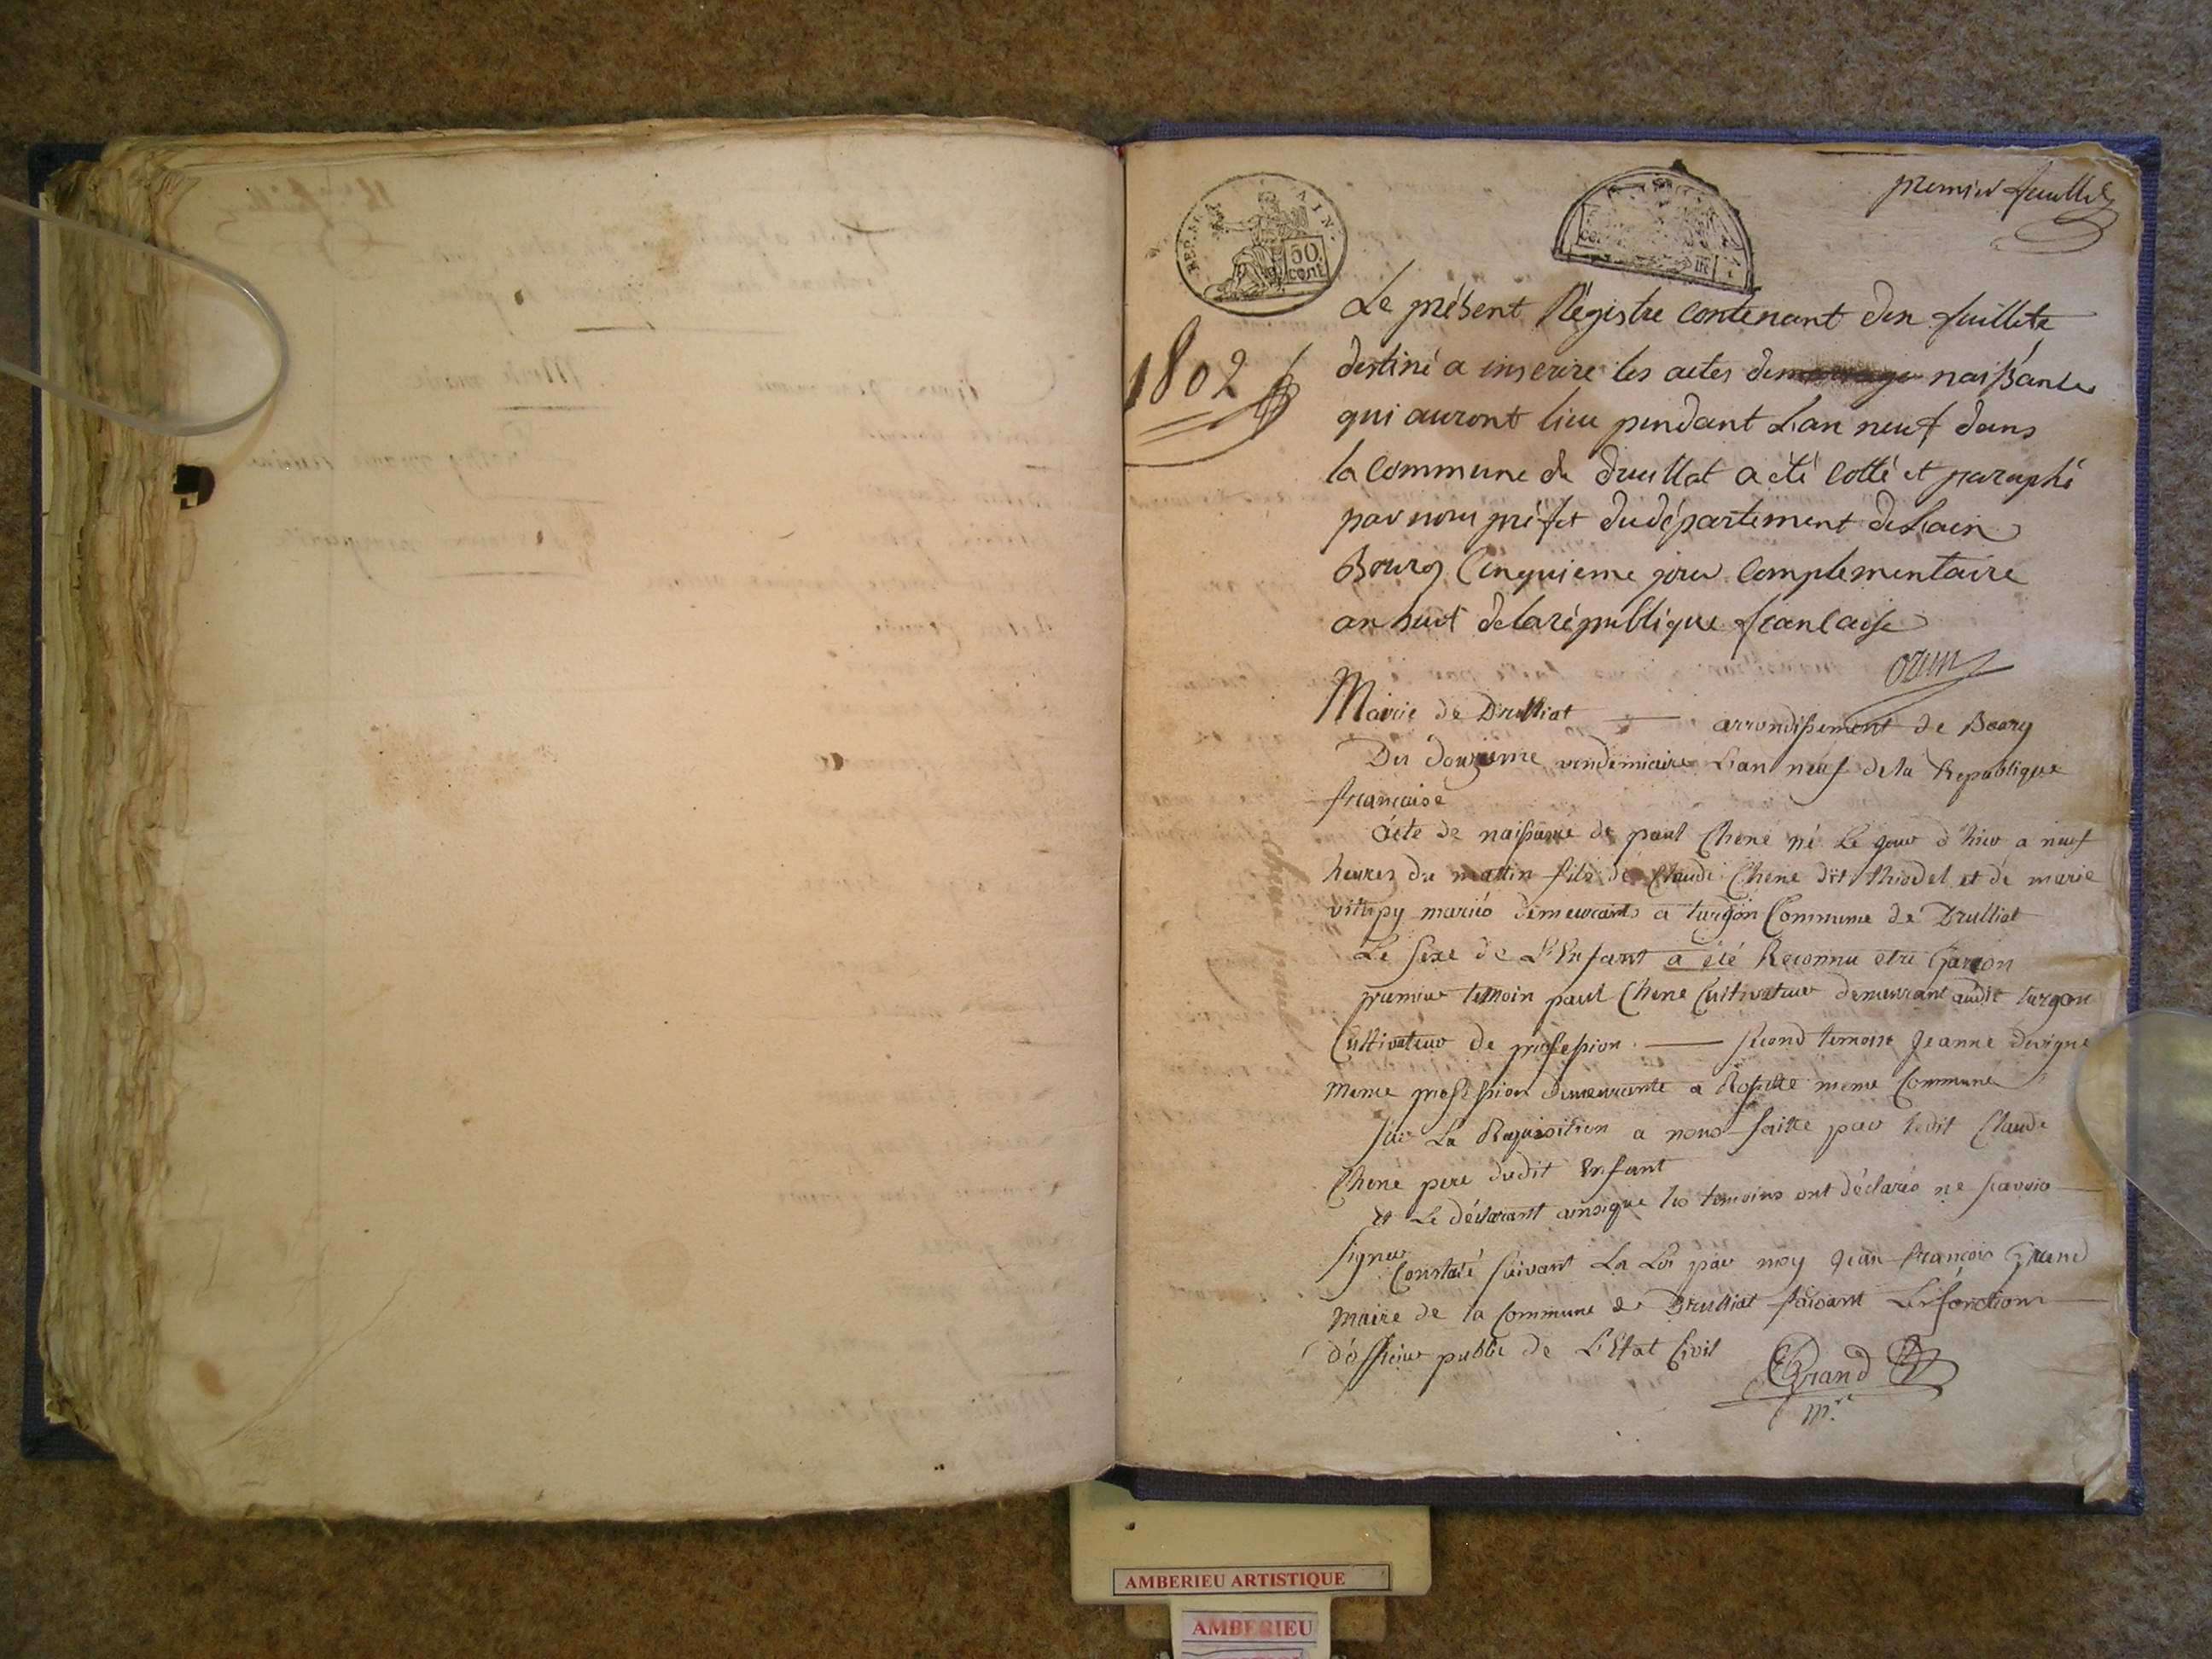 premier feuillet
REP. FRA
AIN.
50
cent
1802
Le présent Régistre contenant dix feuillets
destiné a inscrire les actes de naissances
qui auront lieu pendant L'an neuf dans
la Commune de druillat a été cotté et paraphé
par nous préfet du département de L'ain
Bourg Cinquieme jour Complementaire
an huit de la république francaise
ozun
Mairie de Drulliat — arrondissement de Bourg
Du douzieme vendemiaire L'an neuf de la Republique
francaise
Acte de naissance de paul Chene né Le jour d'hier a neuf
heures du mattin fils de Claude Chene dit et de marie
vitupy mariés demeurants a turgon Commune de Drulliat
Le sexe de L'Enfant a été Reconnu etre Garcon
premier temoin paul Chene Cultivateur demeurant audit turgon
Cultivateur de profession. — second temoin Jeanne
meme profession demeurante a meme Commune
sur La Requisition a nous faitte par ledit Claude
Chene pere dudit Enfant
et Le déclarant ainsique les temoins ont déclarés ne scavoir
signer
Constaté suivant La Loi par moy jean francois Grand
maire de la Commune de Drulliat faisant Les fonctions
d'officier public de L'Etat Civil
Grand
m.re
chene paul
AMBERIEU ARTISTIQUE
AMBERIEU